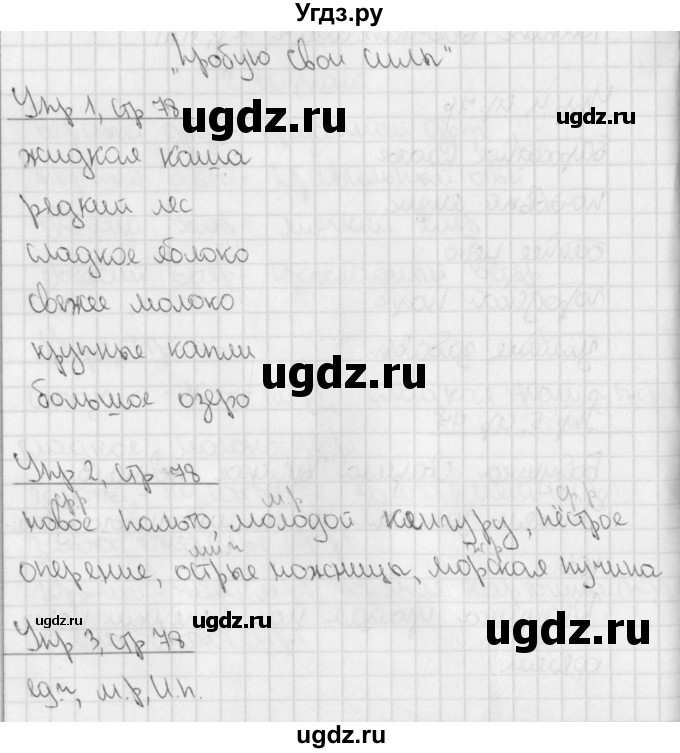 Угдз.ру
„Пробую свои силы"
Упр 1, стр 78
жидкая каша
редкий лес
сладкое яблоко
свежее молоко
крупные капли
большое озеро
Упр 2, стр 78
ср.р м.р ср.р
новое пальто, молодой кенгуру, пёстрое
мн.ч ж.р
оперение, острые ножницы, морская пучина
Упр 3, стр 78
ед.ч, м.р, И.п.
ugdz.ru
ugdz.ru
ugdz.ru
ugdz.ru
ugdz.ru
ugdz.ru
ugdz.ru
ugdz.ru
ugdz.ru